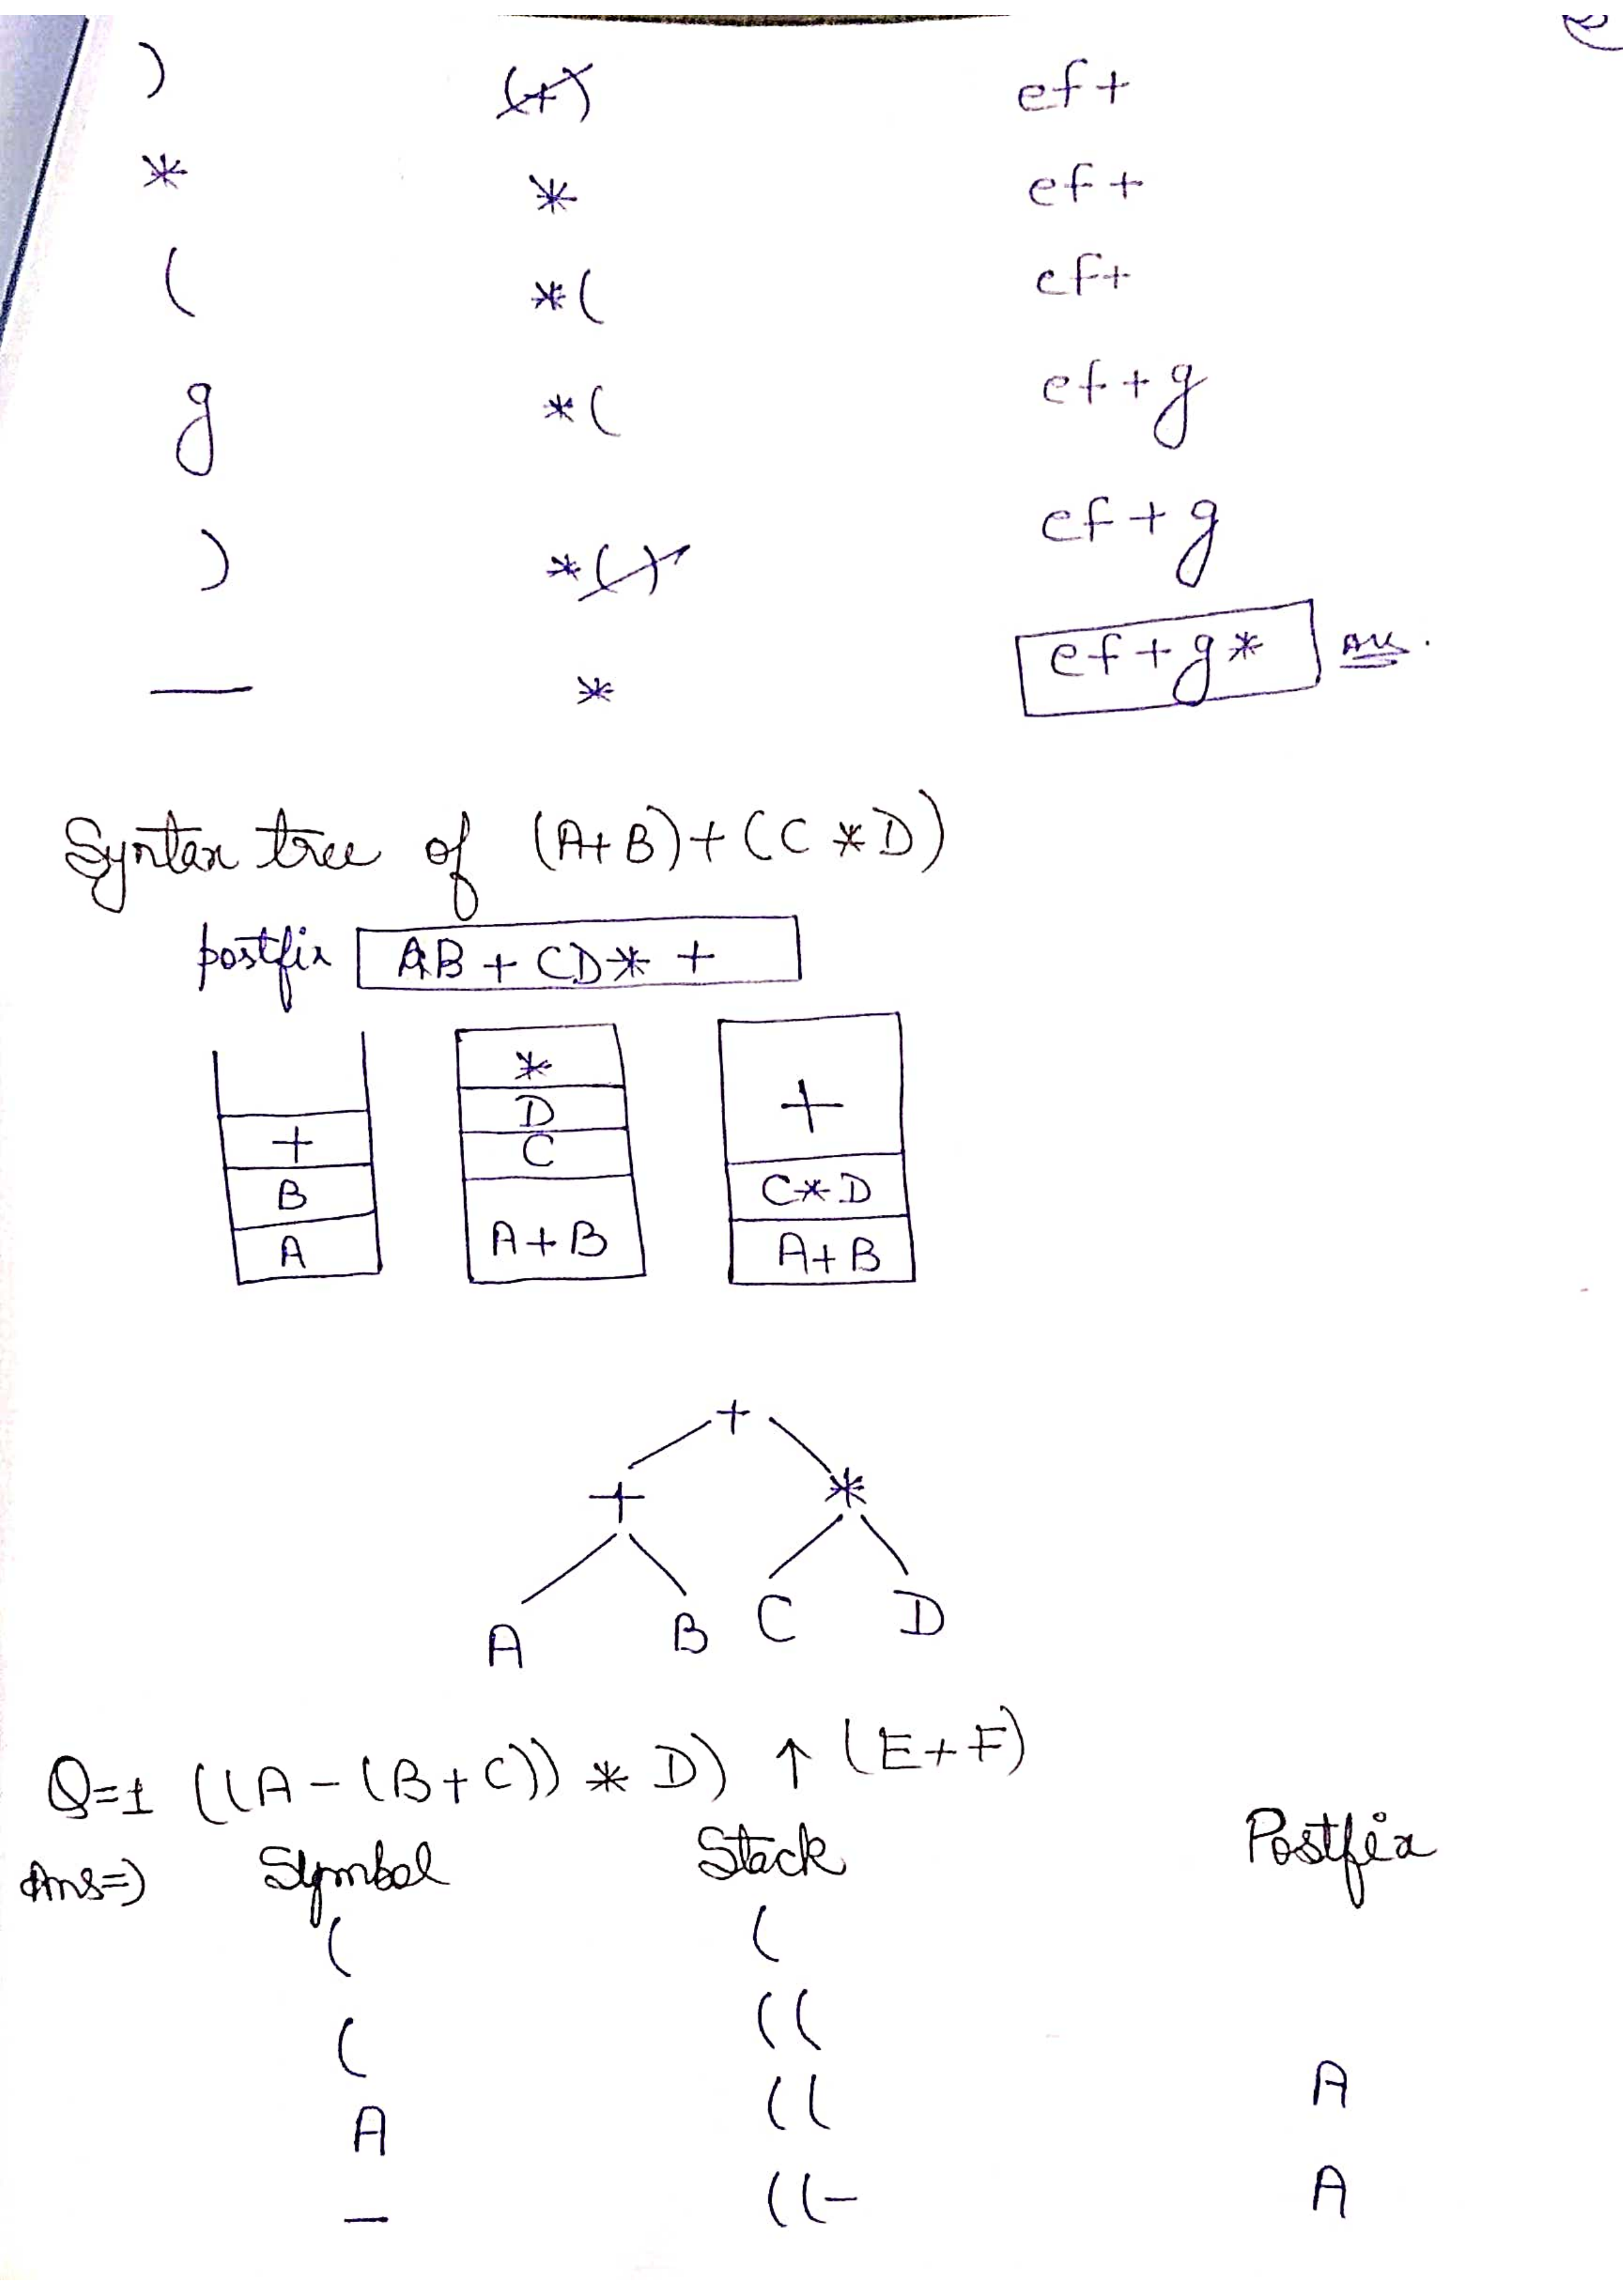 ) (+) ef+
* * ef+
( *( ef+
g *( ef+g
) *() ef+g
— * ef+g* Ans.
Syntax tree of (A+B)+(C*D)
postfix AB+CD*+
* +
+ D
B C C*D
A A+B A+B
+
+ *
A B C D
Q=1 ((A-(B+C))*D)↑(E+F)
Ans=) Symbol Stack Postfix
( (
( ((
A (( A
- ((- A